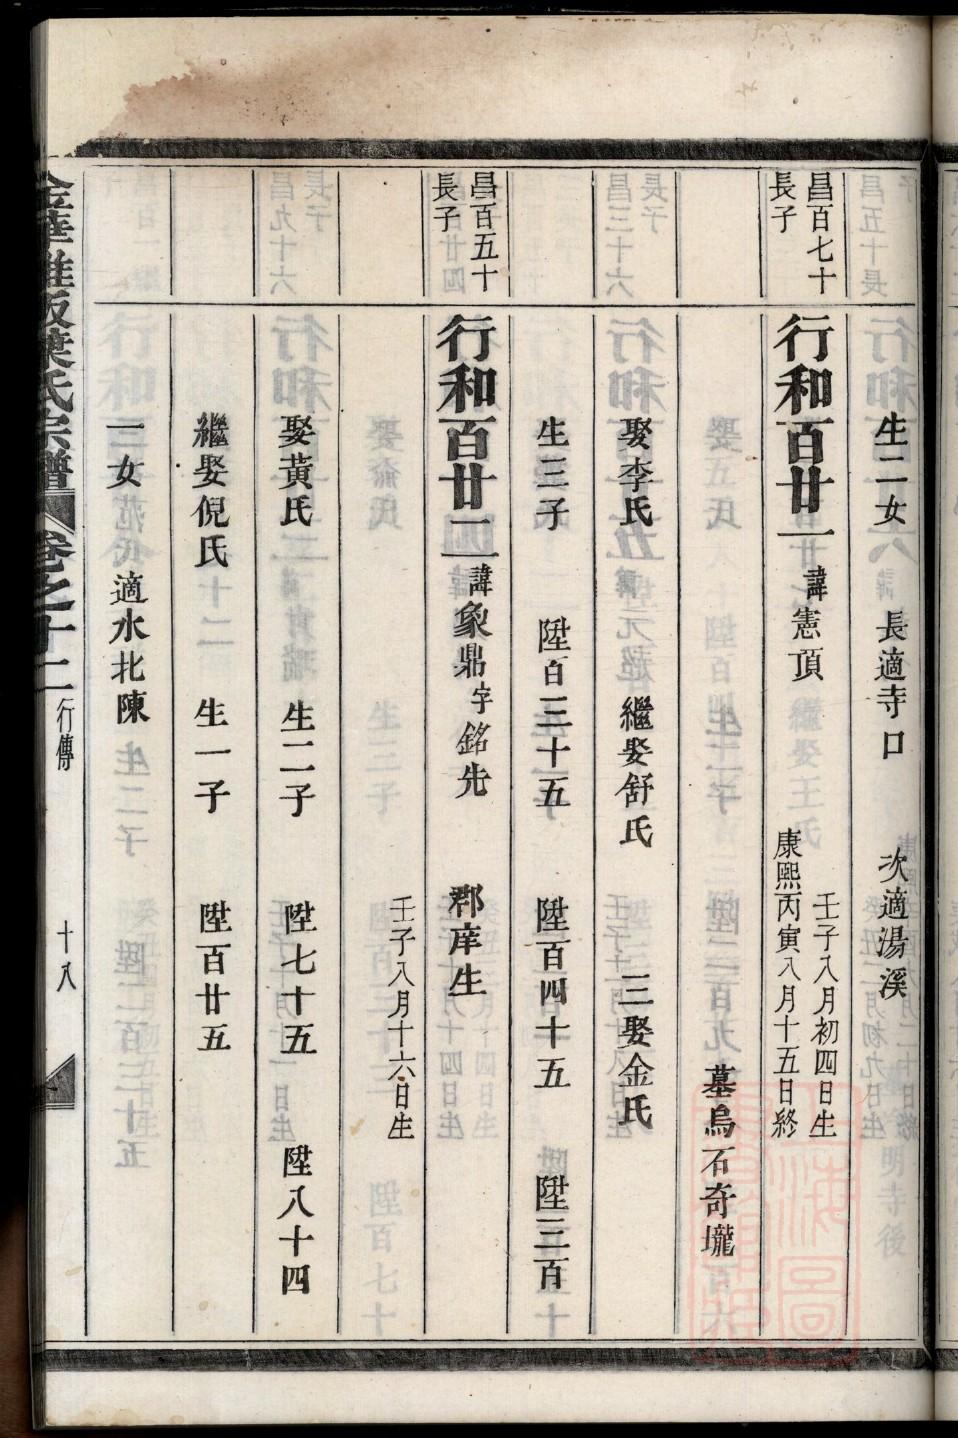 生二女 長適寺口 次適湯溪
昌百七十
長子
行和百廿一 諱憲頂
壬子八月初四日生
康熙丙寅八月十五日終
墓烏石奇壠
娶李氏 繼娶舒氏 三娶金氏
生三子 陞百三十五 陞百四十五 陞三百
昌百五十
長子
行和百廿一 諱象鼎 字銘先 郡庠生
壬子八月十六日生
娶黃氏 生二子 陞七十五 陞八十四
繼娶倪氏 生一子 陞百廿五
一女 適水北陳
葉氏宗譜 卷之十二 行傳 十八